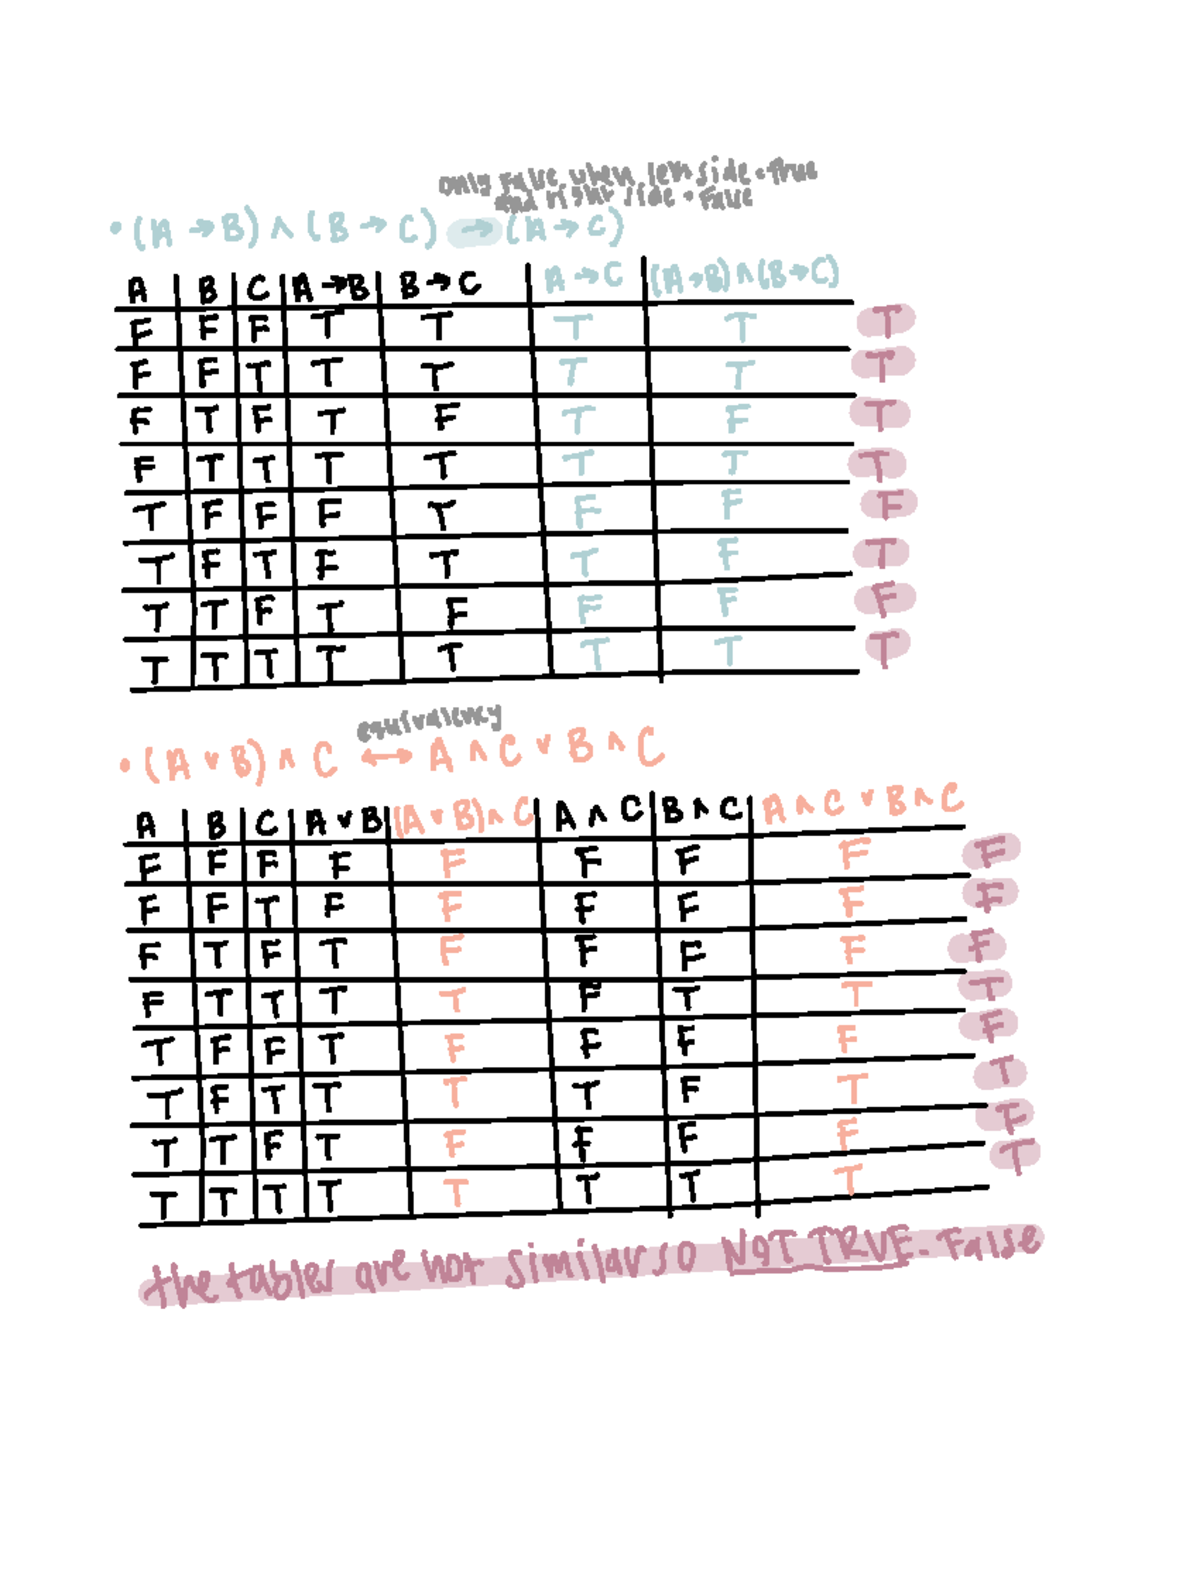 only false when left side = True
and right side = False
• (A → B) ∧ (B → C) → (A → C)
A B C A → B B → C A → C (A → B) ∧ (B → C)
F F F T T T T T
F F T T T T T T
F T F T F T F T
F T T T T T T T
T F F F T F F F
T F T F T T F T
T T F T F F F F
T T T T T T T T
equivalency
• (A ∨ B) ∧ C ↔ A ∧ C ∨ B ∧ C
A B C A ∨ B (A ∨ B) ∧ C A ∧ C B ∧ C A ∧ C ∨ B ∧ C
F F F F F F F F F
F F T F F F F F F
F T F T F F F F F
F T T T T F T T T
T F F T F F F F F
T F T T T T F T T
T T F T F F F F F
T T T T T T T T T
the tables are not similar so NOT TRUE - False